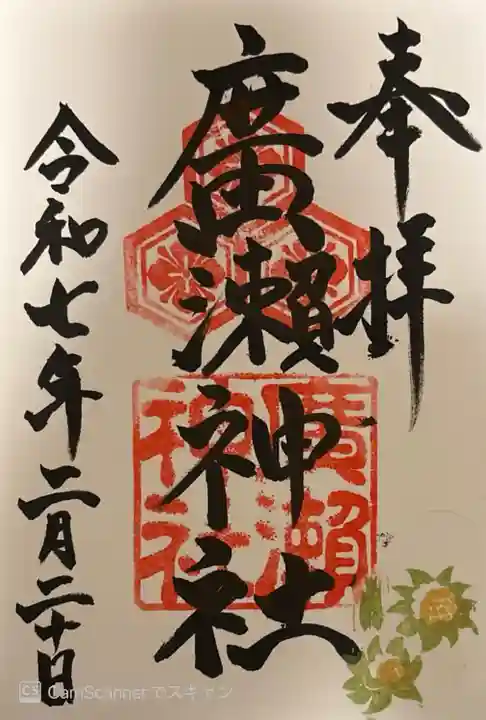 奉拝
廣瀬神社
廣瀬
神社
令和七年二月二十日
CS CamScannerでスキャン